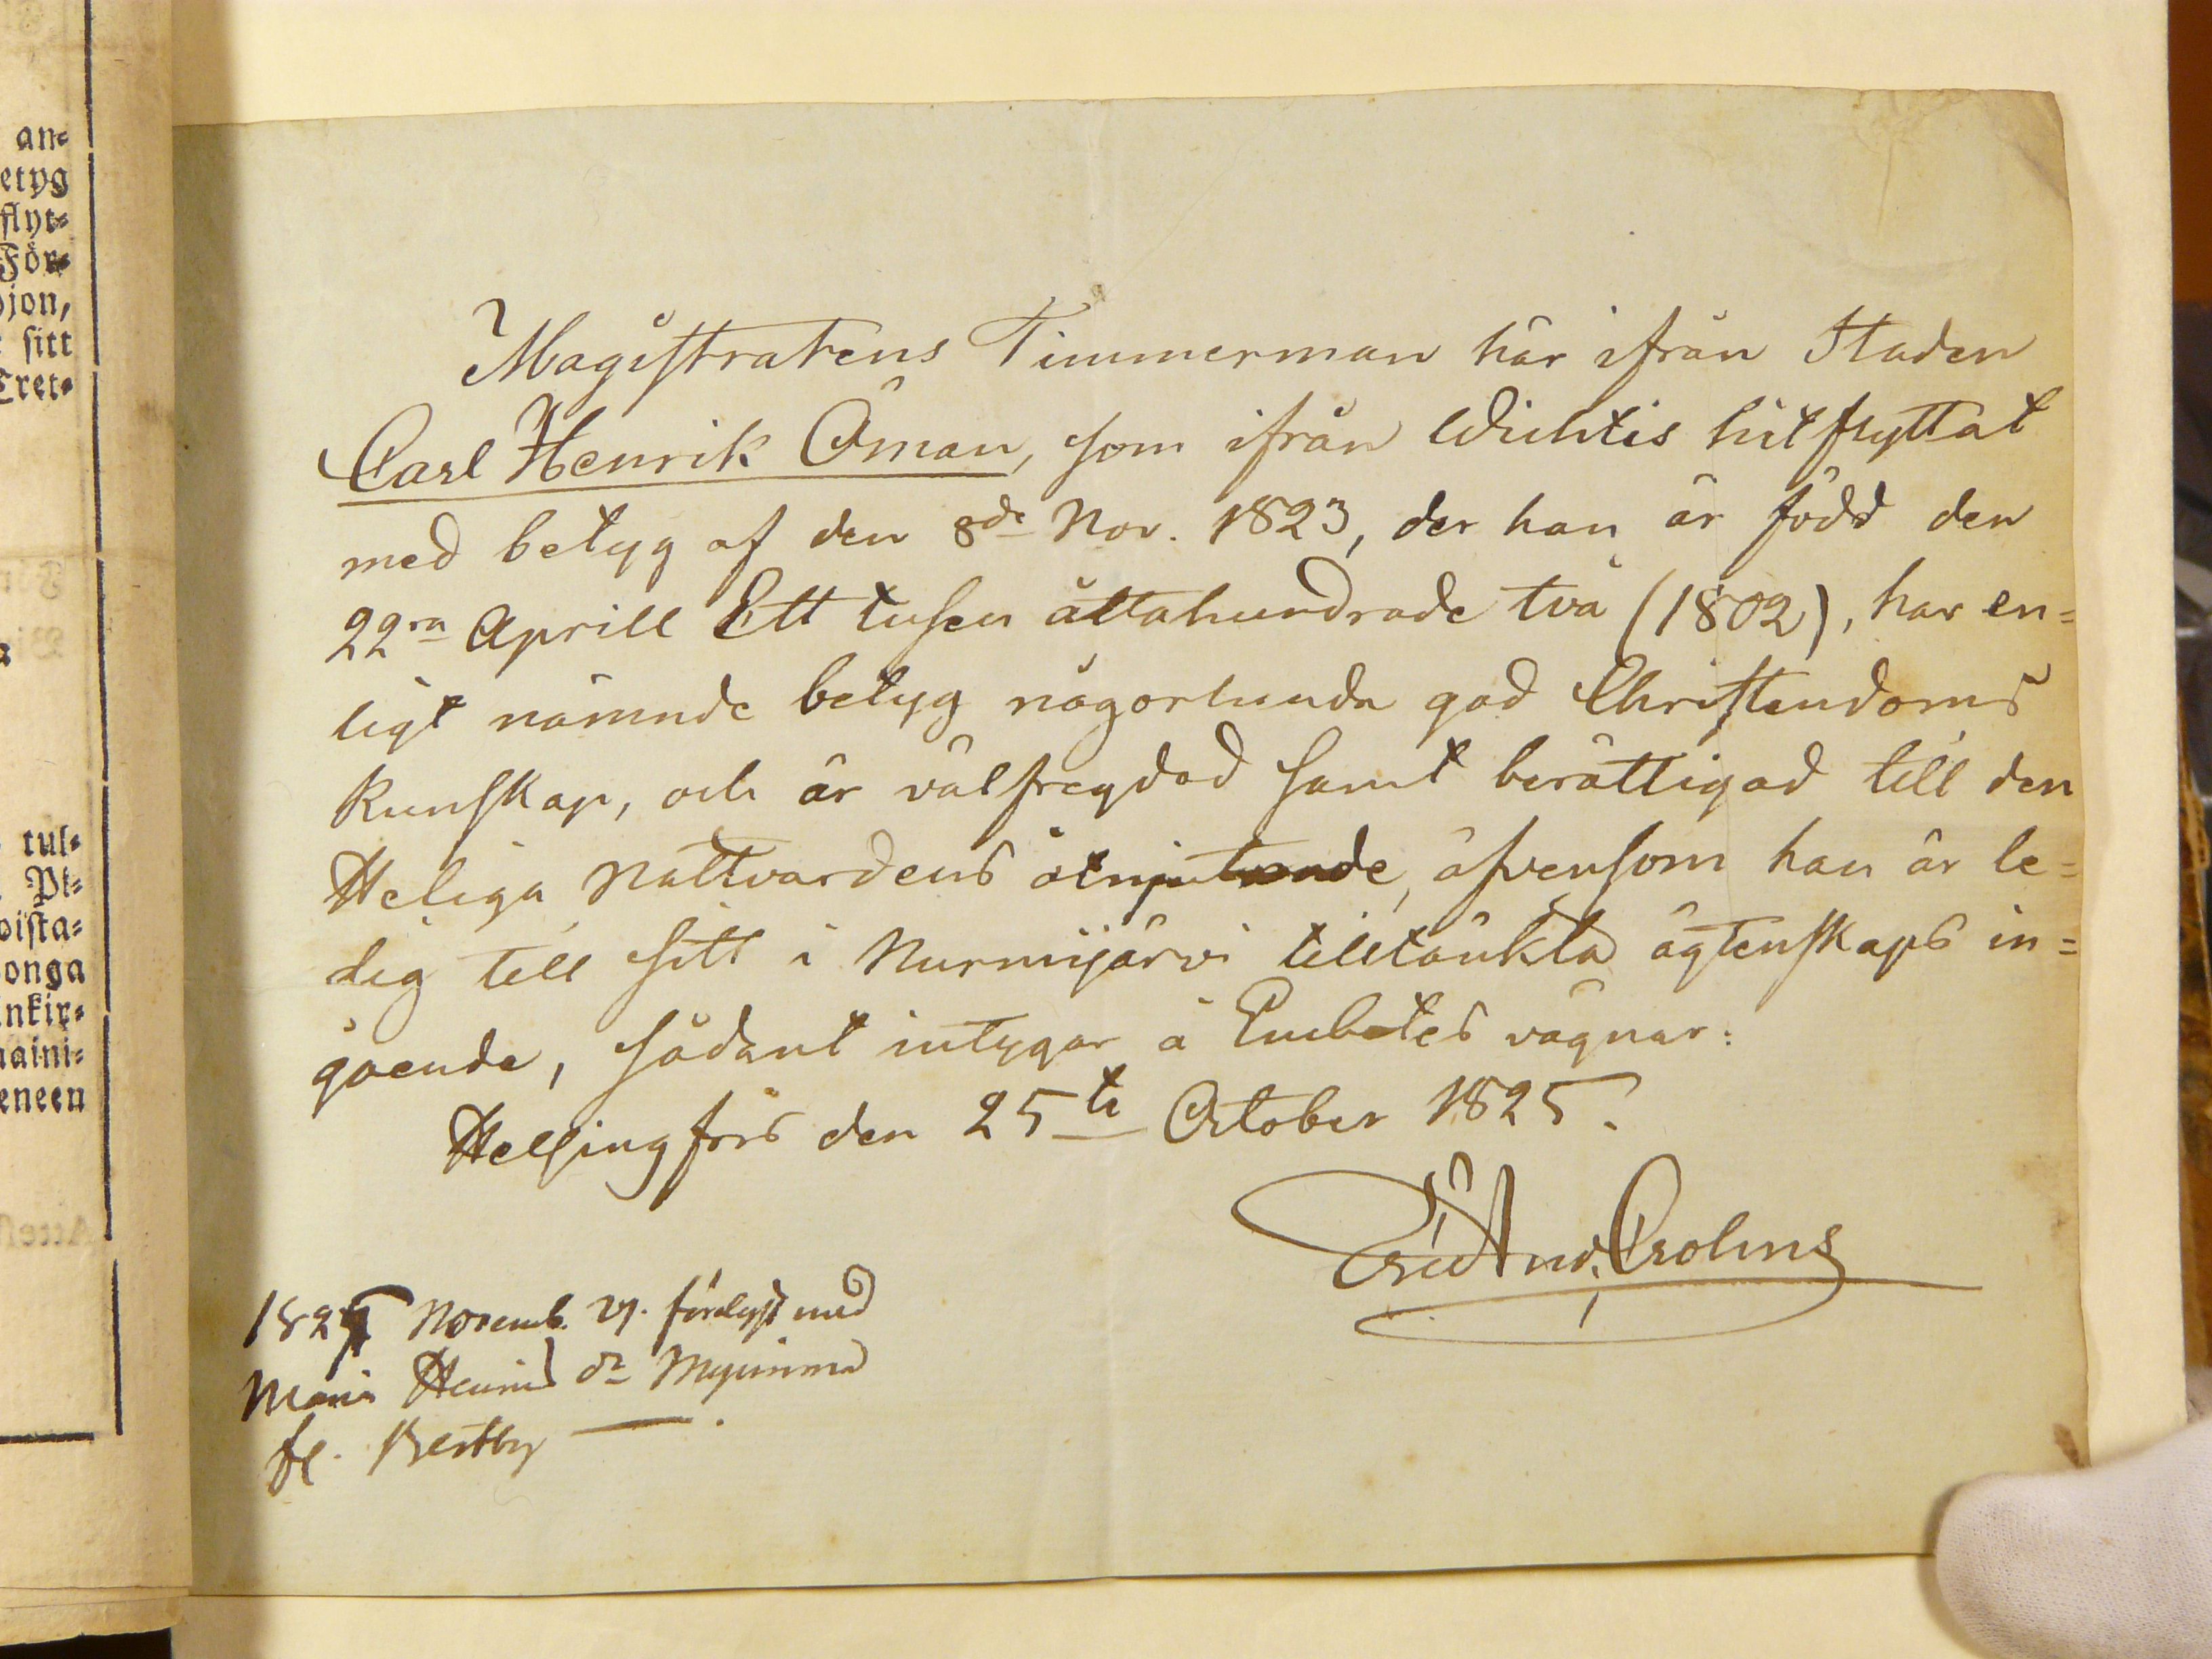 an=
etyg
flyt=
För=
jon,
sitt
Tret=
tul=
Pi=
oista=
onga
nkir=
aini=
eneen
Magistratens Timmerman här ifrån Staden
Carl Henrik Öman, som ifrån Wichtis hitflyttat
med betyg af den 8de Nov. 1823, der han är född den
22ra Aprill Ett tusen åttahundrade två (1802), har en=
ligt nämnde betyg någorlunda god Christendoms
kunskap, och är välfregdad samt berättigad till den
Heliga Nattvardens åtnjutande, äfvensom han är le=
dig till sitt i Nurmijärvi tilltänkta ägtenskaps in=
gående, sådant intygar å Embetes vägnar:
Helsingfors den 25te October 1825.
Eric And. Crolins
1825 Novemb. 27. förlyst med
Maria Henrics dr
fr.